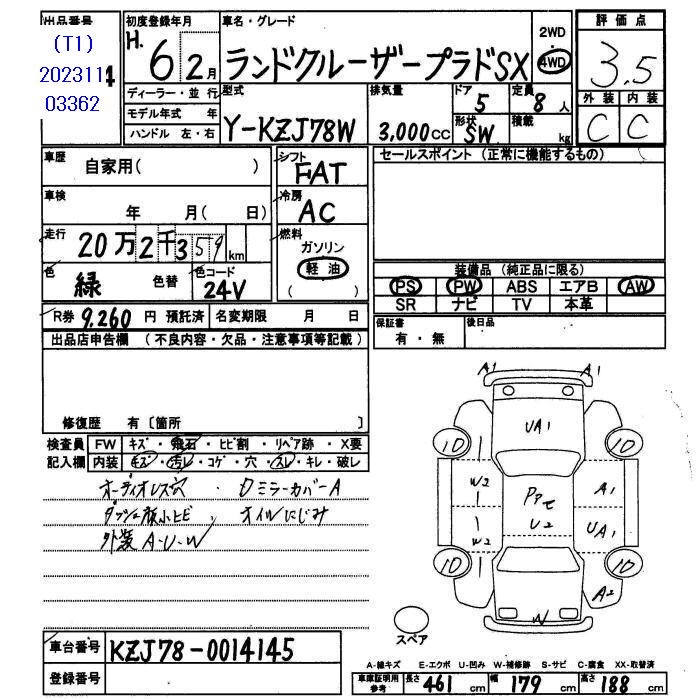 出品番号 初度登録年月 車名・グレード 2WD 評価点
(T1) H. 6 2月 ランドクルーザープラドSX 4WD 3.5
2023111 ディーラー・並行 型式 排気量 ドア 定員 外装 内装
03362 モデル年式 年 5 8人 C C
ハンドル 左・右 Y-KZJ78W 3,000cc 形状 SW 積載 kg
車歴 自家用( ) シフト FAT セールスポイント (正常に機能するもの)
車検 年 月( 日) 冷房 AC
走行 20万2千359km 燃料 ガソリン
色 緑 色替 色コード 24V 軽油 装備品 (純正品に限る)
( ) PS PW ABS エアB AW
SR ナビ TV 本革
R券 9,260 円 預託済 名変期限 月 日 保証書 有・無 後日品
出品店申告欄 (不良内容・欠品・注意事項等記載)
A1 A1
UA1
修復歴 有〔箇所 〕
検査員 FW キズ・飛石・ヒビ割・リペア跡・X要 10 10
記入欄 内装 キズ・汚レ・コゲ・穴・スレ・キレ・破レ
オーディオレス穴・Dミラーカバー A W2 A1
ダッシュ廻小ヒビ、オイルにじみ U2
外装 A・U・W W2 UA1
10 10
A2
W
スペア
車台番号 KZJ78-0014145
登録番号
A-線キズ E-エクボ U-凹み W-補修跡 S-サビ C-腐食 XX-取替済
車庫証明用参考 長さ 461 cm 幅 179 cm 高さ 188 cm